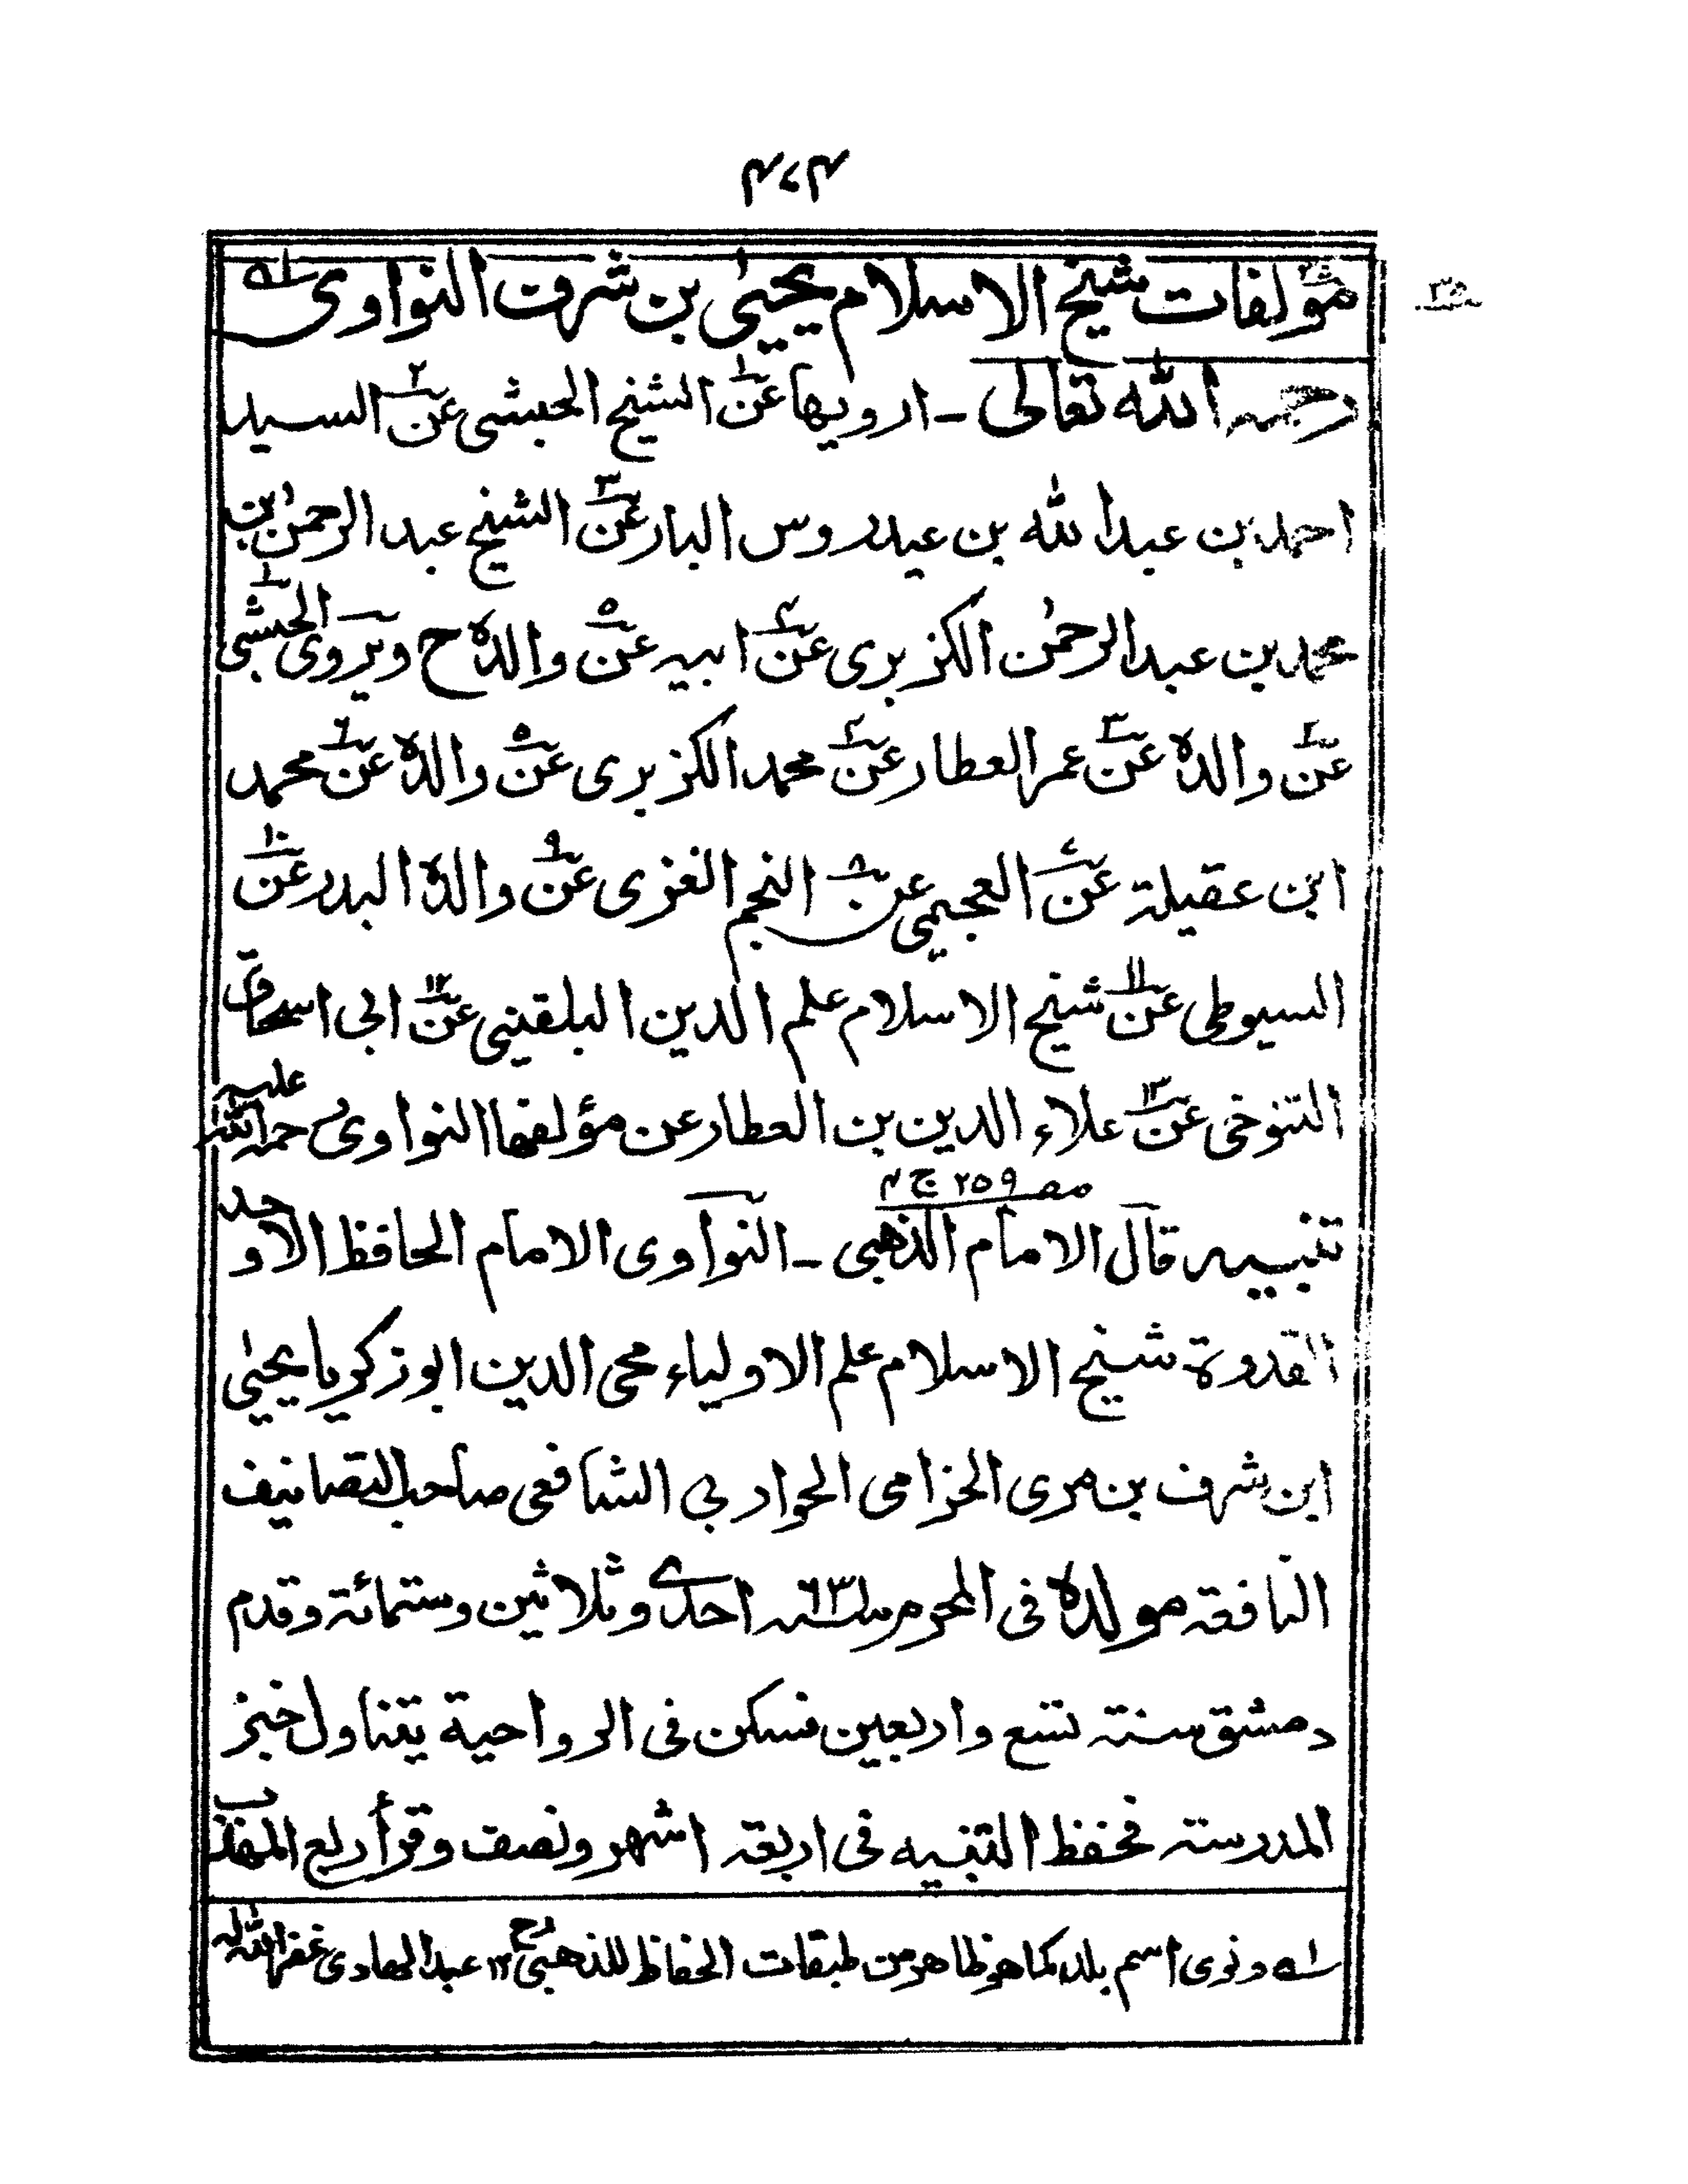 ۴۷۴
مؤلفات شیخ الاسلام یحییٰ بن شرف النواوی لـه
رحمہ اللہ تعالی ـ ارویها عن۱ الشیخ الحبشی عن۲ السید
احمد بن عبد اللہ بن عیدروس البار عن۳ الشیخ عبد الرحمٰن بن
محمد بن عبد الرحمٰن الکزبری عن۴ ابیہ عن۵ والدہ ح ویروی الحبشی۱
عن۲ والدہ عن۳ عمر العطار عن۴ محمد الکزبری عن۵ والدہ عن۶ محمد
ابن عقیلة عن۷ العجیمی عن۸ النجم الغزی عن۹ والدہ البدر عن۱۰
السیوطی عن۱۱ شیخ الاسلام علم الدین البلقینی عن۱۲ ابی اسحاق
التنوخی عن۱۳ علاء الدین بن العطار عن مؤلفها النواوی رحمۃ اللہ علیہ
صـ ۲۵۹ ج ۴
تنبیہ قال الامام الذهبی ـ النواوی الامام الحافظ الاوحد
القدوة شیخ الاسلام علم الاولیاء محی الدین ابو زکریا یحییٰ
ابن شرف بن مری الخزامی الحواربی الشافعی صاحب التصانیف
النافعہ مولدہ فی المحرم سنہ ۶۳۱ احدی وثلاثین وستمائة وقدم
دمشق سنتہ تسع واربعین فسکن فی الرواحیة یتناول خبز
المدرستہ فحفظ التنبیه فی اربعہ اشهر ونصف وقرأ ربع المهذب
لـه ونوی اسم بلدہ کما هو ظاهر من طبقات الحفاظ للذهبی رح ۱۲ عبد الهادی غفر اللہ لہ